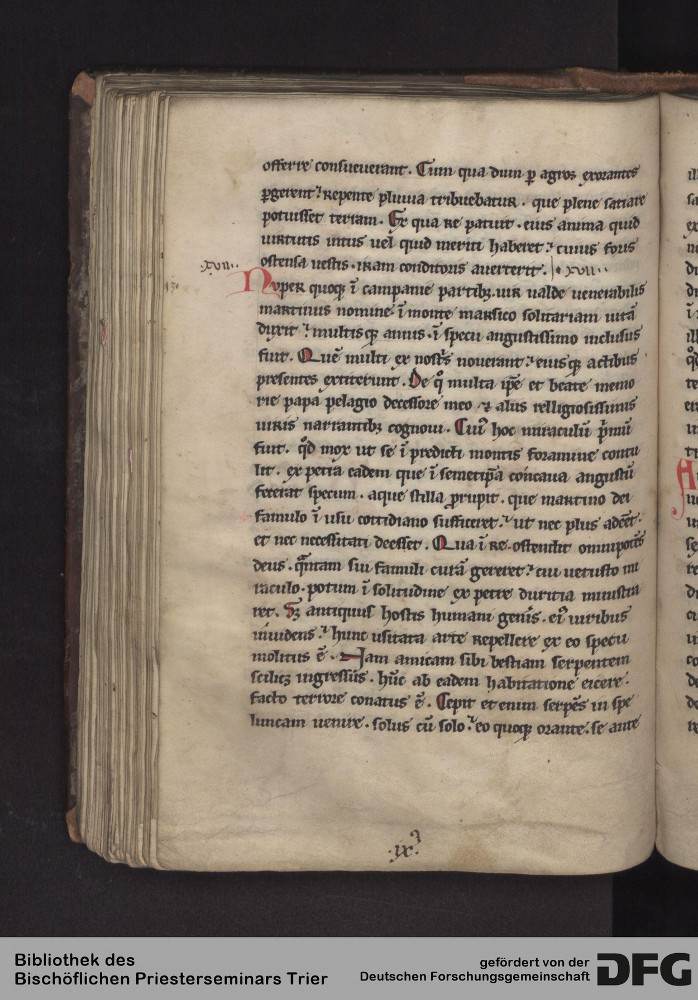 offerre consueuerant. Cum qua dum ꝑ agros exorantes
ꝑgerent: repente pluuia tribuebatur. que plene satiare
potuisset terram. Ex qua re patuit. eius anima quid
uirtutis intus uel quid meriti haberet: cuius foris
ostensa uestis. iram conditoris auerterit. xvii.
.xvii.
Nuper quoqꝫ ī campanie partibꝫ. uir ualde uenerabilis
martinus nomine. ī monte marsico solitariam uitā
duxit: multisqꝫ annis. ī specu angustissimo inclusus
fuit. Quē multi ex nostͥs nouerant: eiusqꝫ actibus
presentes extiterunt. De qͦ multa ip̄e et beate memo
rie papa pelagio decessore meo ⁊ aliis relligiosissimis
uiris narrantibꝫ cognoui. Cuiꝰ hoc miraculū p̄mū
fuit. qd̄ mox ut se ī predicti montis foramine contu
lit. ex petra eadem que ī semetip̄a concaua angustū
fecerat specum. aque stilla ꝓrupit. que martino dei
famulo ī usu cottidiano sufficeret: ut nec plus adēēt.
et nec necessitati deesset. Qua ī re. ostendit omnipotēs
deus. qͣntam sui famuli curā gereret: cui uetusto mi
raculo. potum ī solitudine ex petre duritia ministra
ret. Sꝫ antiquus hostis humani genͥs. eiꝰ uiribus
inuidens: hunc usitata arte repellere ex eo specu
molitus ē. Nam amicam sibi bestiam serpentem
scilicꝫ ingressus. hūc ab eadem habitatione eicere.
facto terrore conatus ē. Cepit etenim serpēs in spe
luncam uenire. solus cū solo: eo quoqꝫ orante. se ante
.ix.
Bibliothek des
Bischöflichen Priesterseminars Trier
gefördert von der
Deutschen Forschungsgemeinschaft
DFG